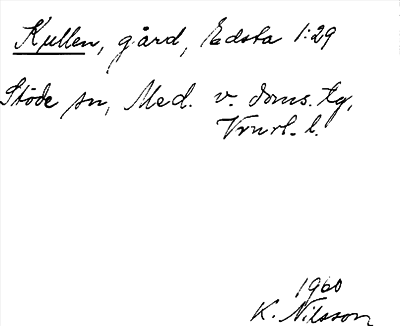 Kullen, gård, Edsta 1:29
Stöde sn, Med. v. doms. tg,
Vrnrl. l.
1960
K. Nilsson